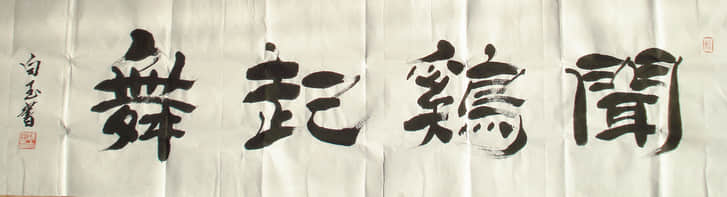 聞鷄起舞
白玉書